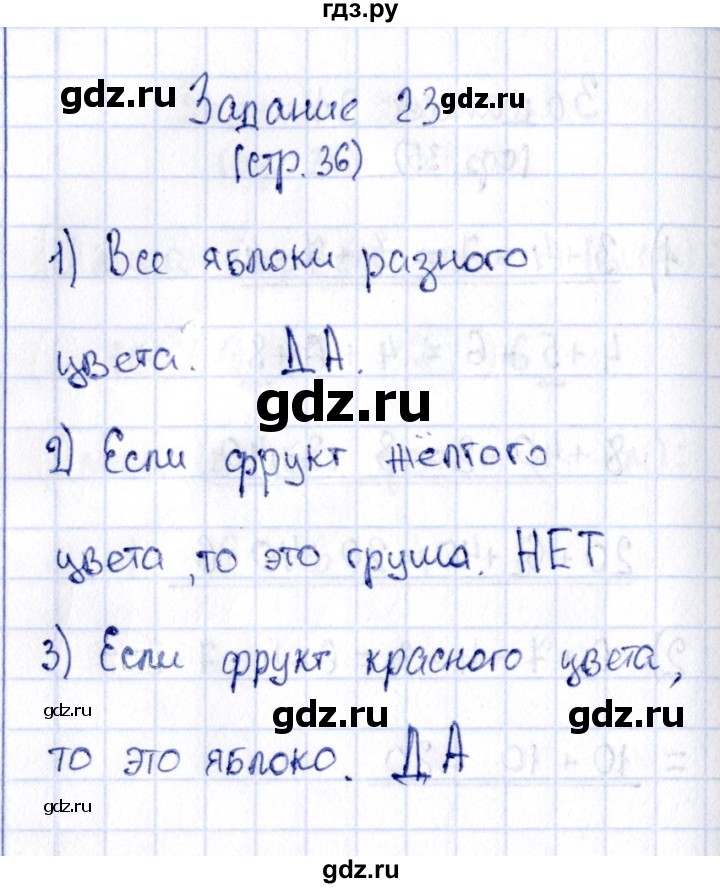 гдз.ру
gdz.ru
Задание 23
gdz.ru
(стр. 36)
1) Все яблоки разного
цвета. ДА.
gdz.ru
2) Если фрукт жёлтого
цвета, то это груша. НЕТ
3) Если фрукт красного цвета,
gdz.ru
gdz.ru
gdz.ru
то это яблоко. ДА
gdz.ru
gdz.ru